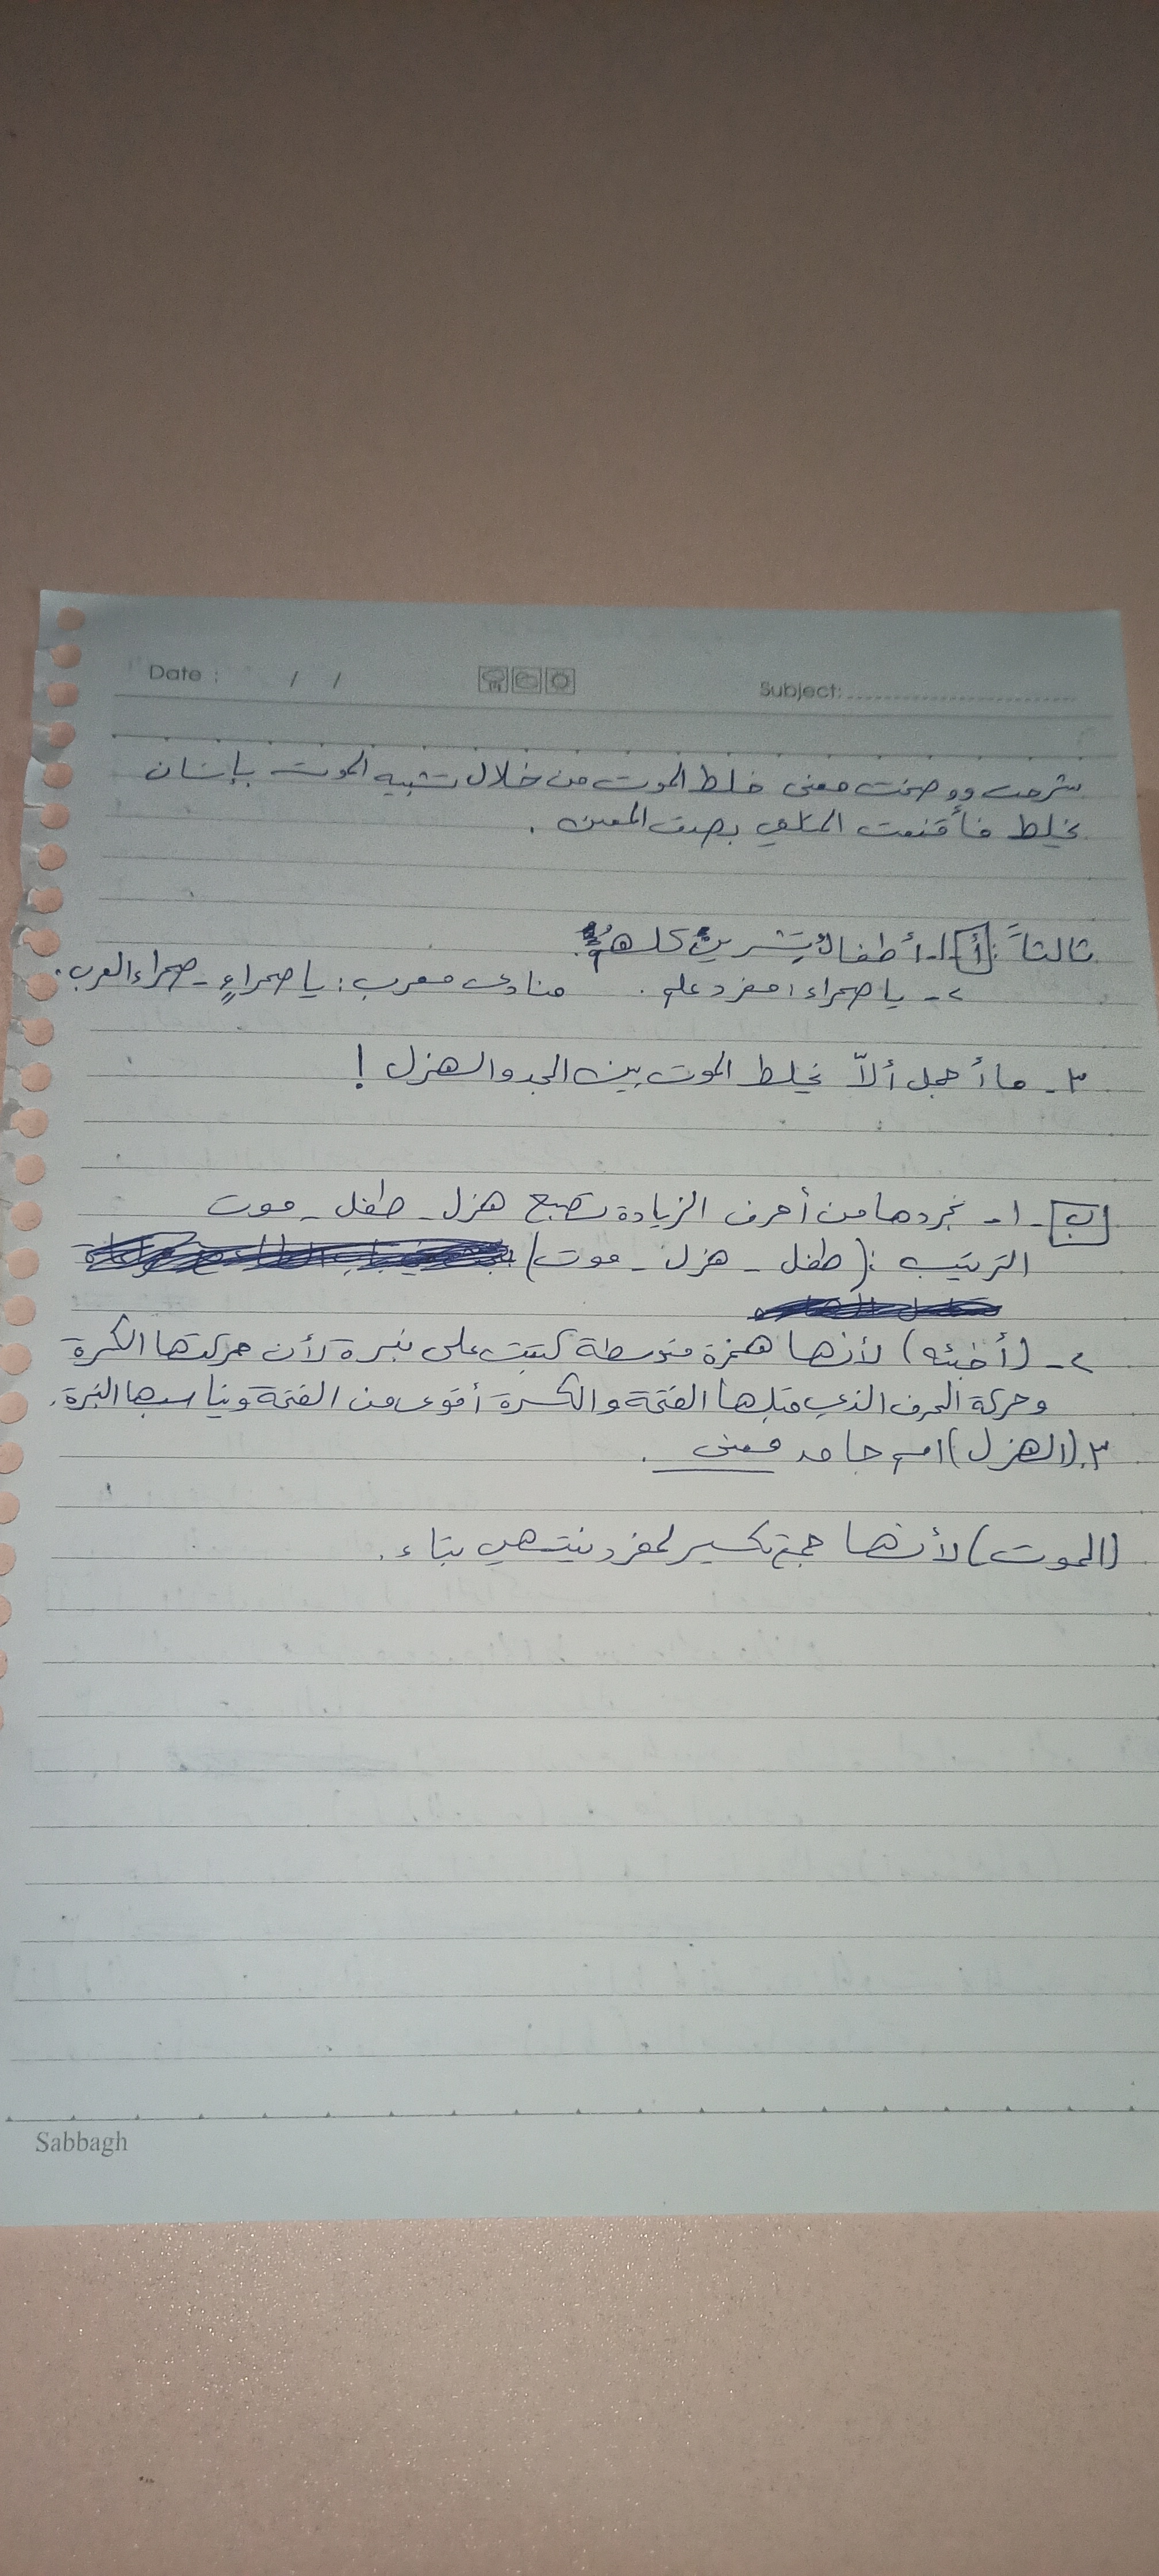 Date : / /
Subject:
شرحت ووضحت معنى خلط الموت من خلال تشبيه الموت بإنسان
يخلط فأقنعت المتلقي بصدق المعنى .
ثالثاً : أ 1- أطفالُ تشرين كلهمُ
٢- يا صحراء : مفرد علم . منادى معرب : يا صحراءٍ - صحراء العرب .
٣- ما أجمل ألاّ يخلط الموت بين الجد والهزل !
ب - ١- نجردها من أحرف الزيادة تصبح هزل - طفل - موت
الترتيب : (طفل - هزل - موت)
٢- (أخبئه) لأنها همزة متوسطة كتبت على نبرة لأن حركتها الكسرة
وحركة الحرف الذي قبلها الفتحة والكسرة أقوى من الفتحة ويناسبها النبرة .
٣. (الهزل) اسم جامد معنى .
(الموت) لأنها جمع تكسير لمفرد ينتهي بتاء .
Sabbagh